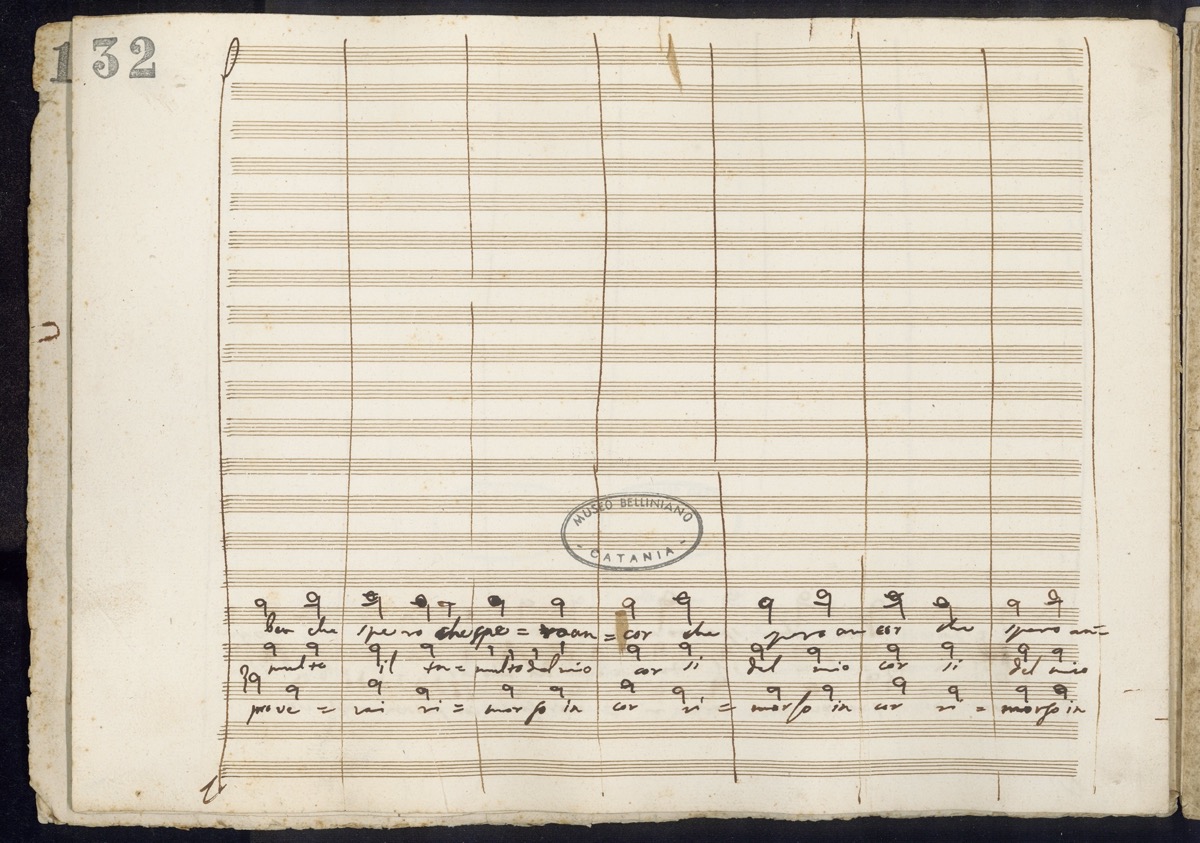 132
MUSEO BELLINIANO
CATANIA
ben che spero che spe = an = cor che spero an cor che spero an=
multo il tu = multo del mio cor si del mio cor si del mio
prove = rai ri = morso in cor ri = morso in cor ri = morso in